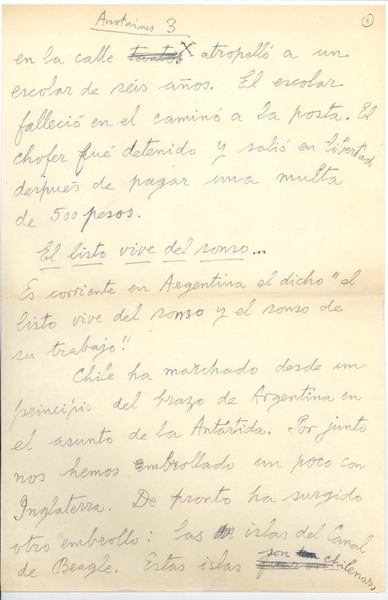 Anotaciones 3
1
en la calle tantos X atropelló a un
escolar de seis años. El escolar
falleció en el camino a la posta. El
chofer fué detenido y salió en libertad
después de pagar una multa
de 500 pesos.
El listo vive del sonso...
Es corriente en Argentina el dicho "el
listo vive del sonso y el sonso de
su trabajo".
Chile ha marchado desde un
principio del brazo de Argentina en
el asunto de la Antártida. Por junto
nos hemos embrollado un poco con
Inglaterra. De pronto ha surgido
otro embrollo: las islas del Canal
de Beagle. Estas islas son chilenas,